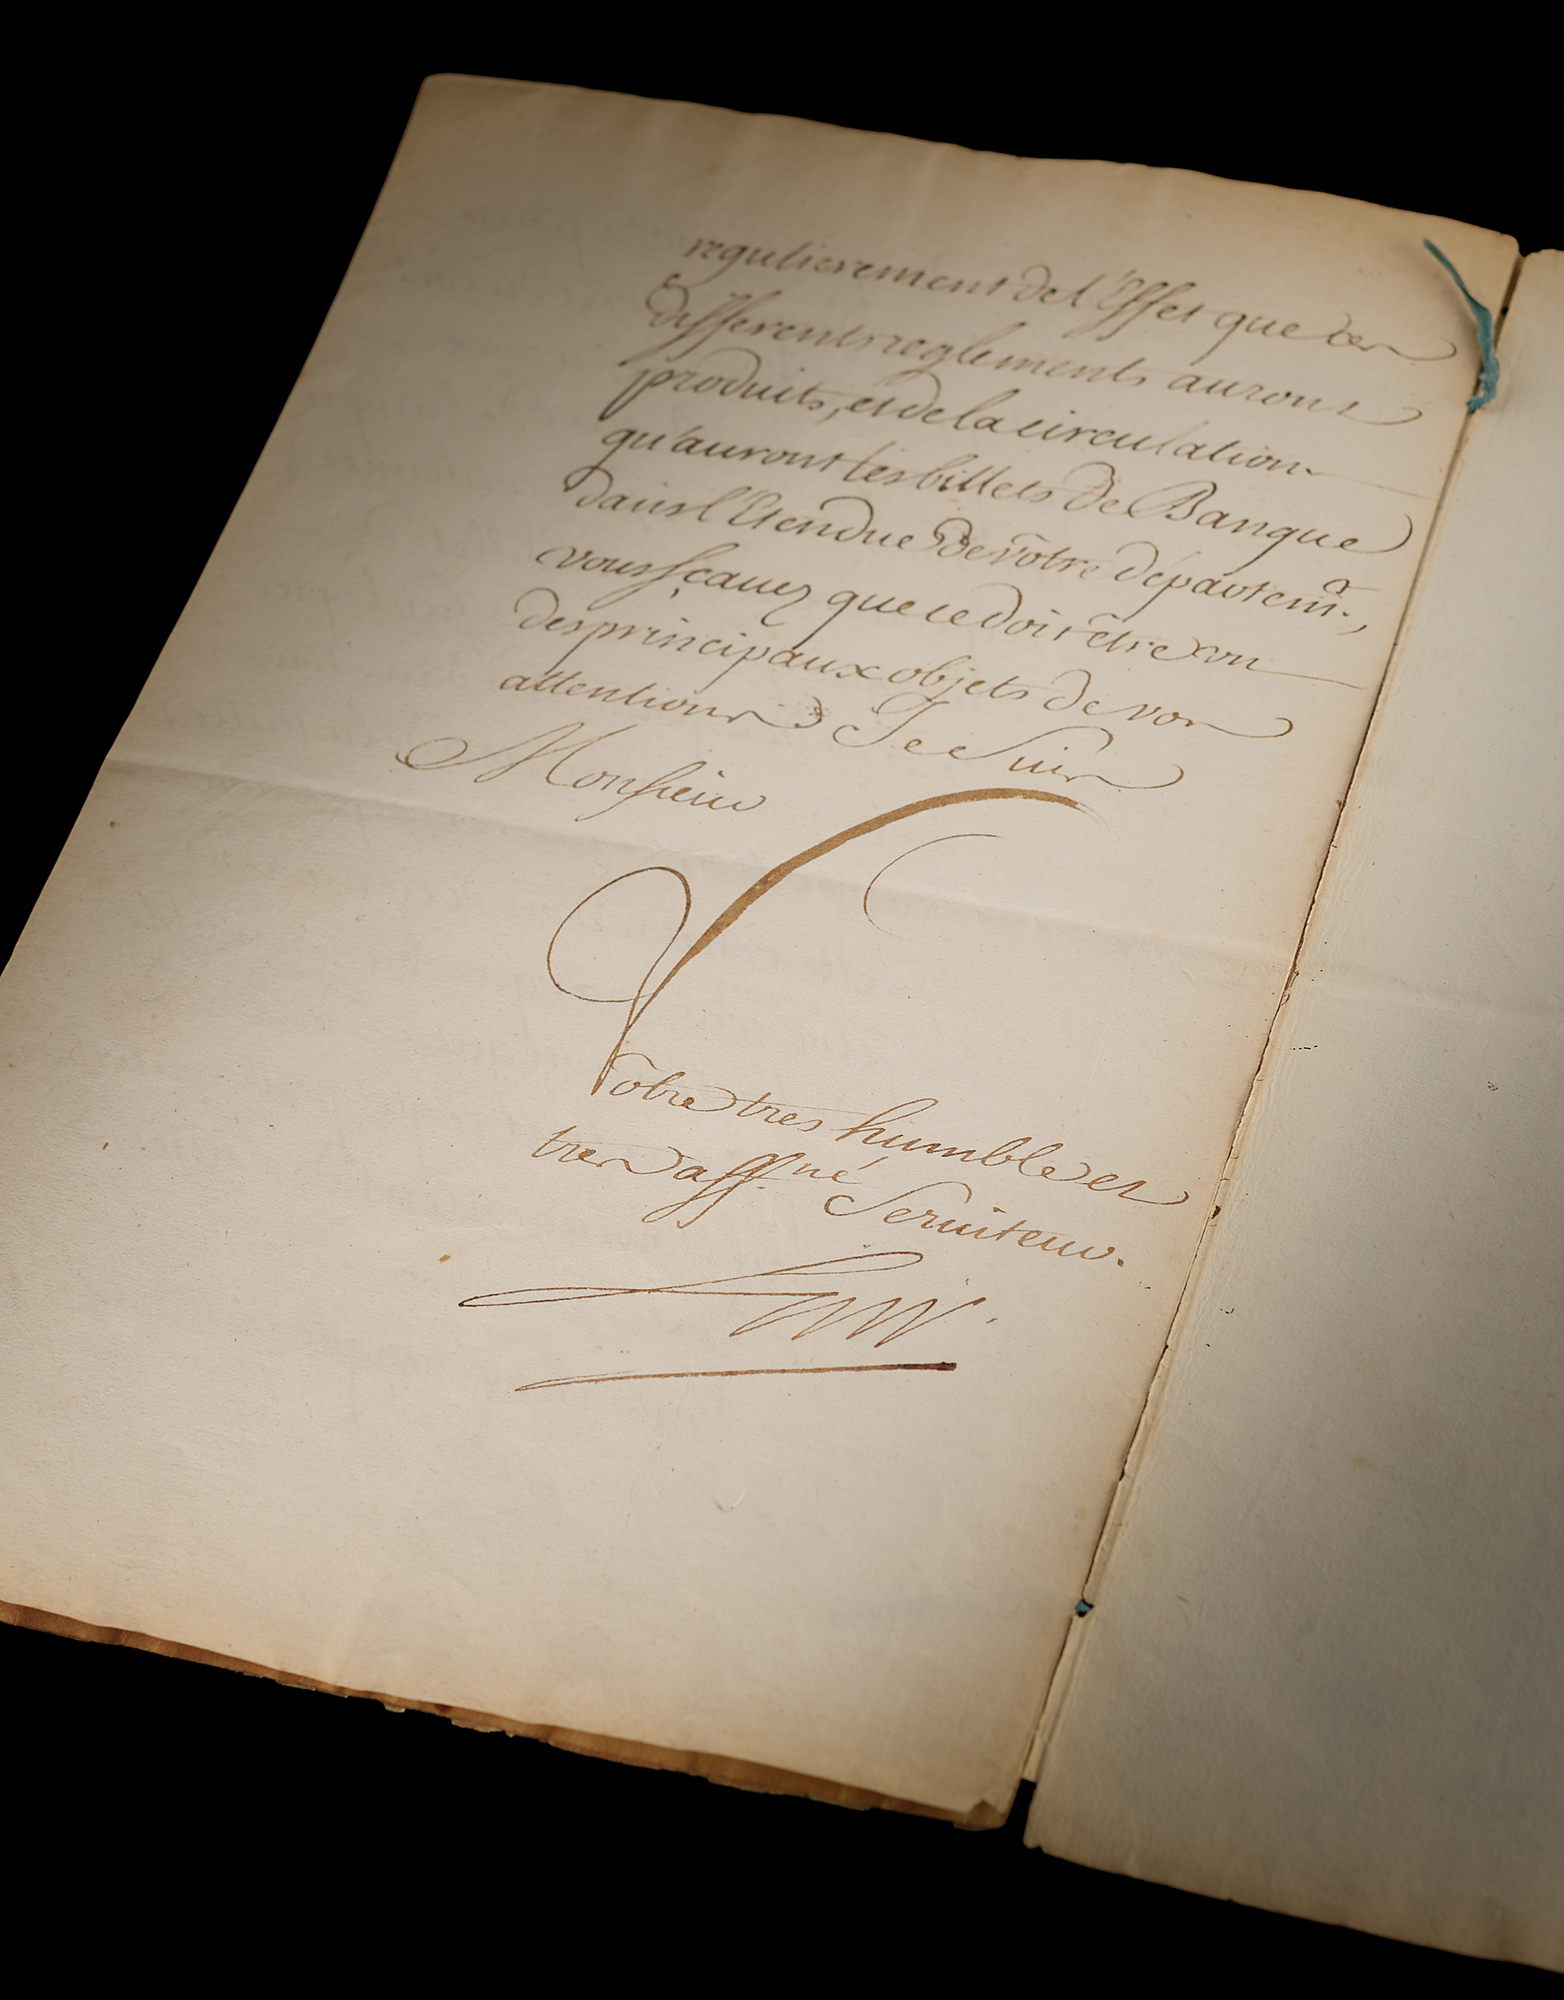 regulierement de l'Effet que ces
differents reglements auront
produits, et de la circulation
qu'auront les billets de Banque
dans l'Etendue de vôtre départem.t,
vous sçavez que ce doit être un
des principaux objets de vos
attentions. Je Suis
Monsieur
Votre tres humble et
tres aff.né Seruiteur.